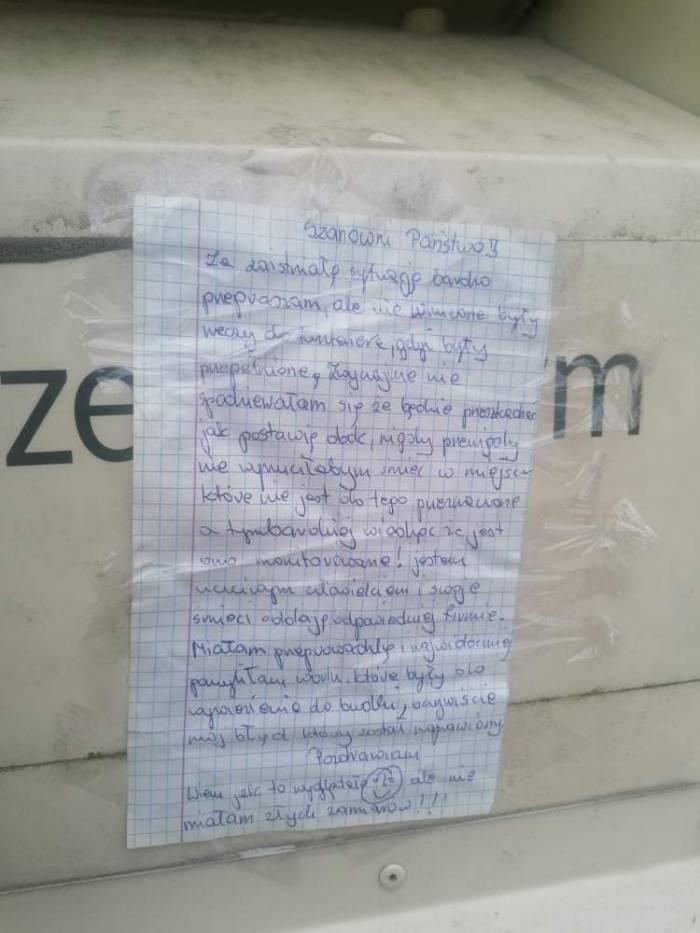 Szanowni Państwo!
Za zaistniałą sytuację bardzo
przepraszam, ale nie wrzucone były
rzeczy do kontenera, gdyż były
przepełnione, zwyczajnie nie
spodziewałam się że będzie przeszkadzać
jak postawię obok, nigdy przenigdy
nie wyrzuciłabym śmieci w miejscu
które nie jest do tego przeznaczone
a tymbardziej wiedząc że jest
ono monitorowane! jestem
uczciwym człowiekiem i swoje
śmieci oddaję odpowiedniej firmie.
Miałam przeprowadzkę i najwidoczniej
pomyliłam worki, które były do
wyrzucenia do budki, oczywiście
mój błąd który został naprawiony.
Pozdrawiam
Wiem jak to wygląda ale nie
miałam złych zamiarów!!!
ze
m